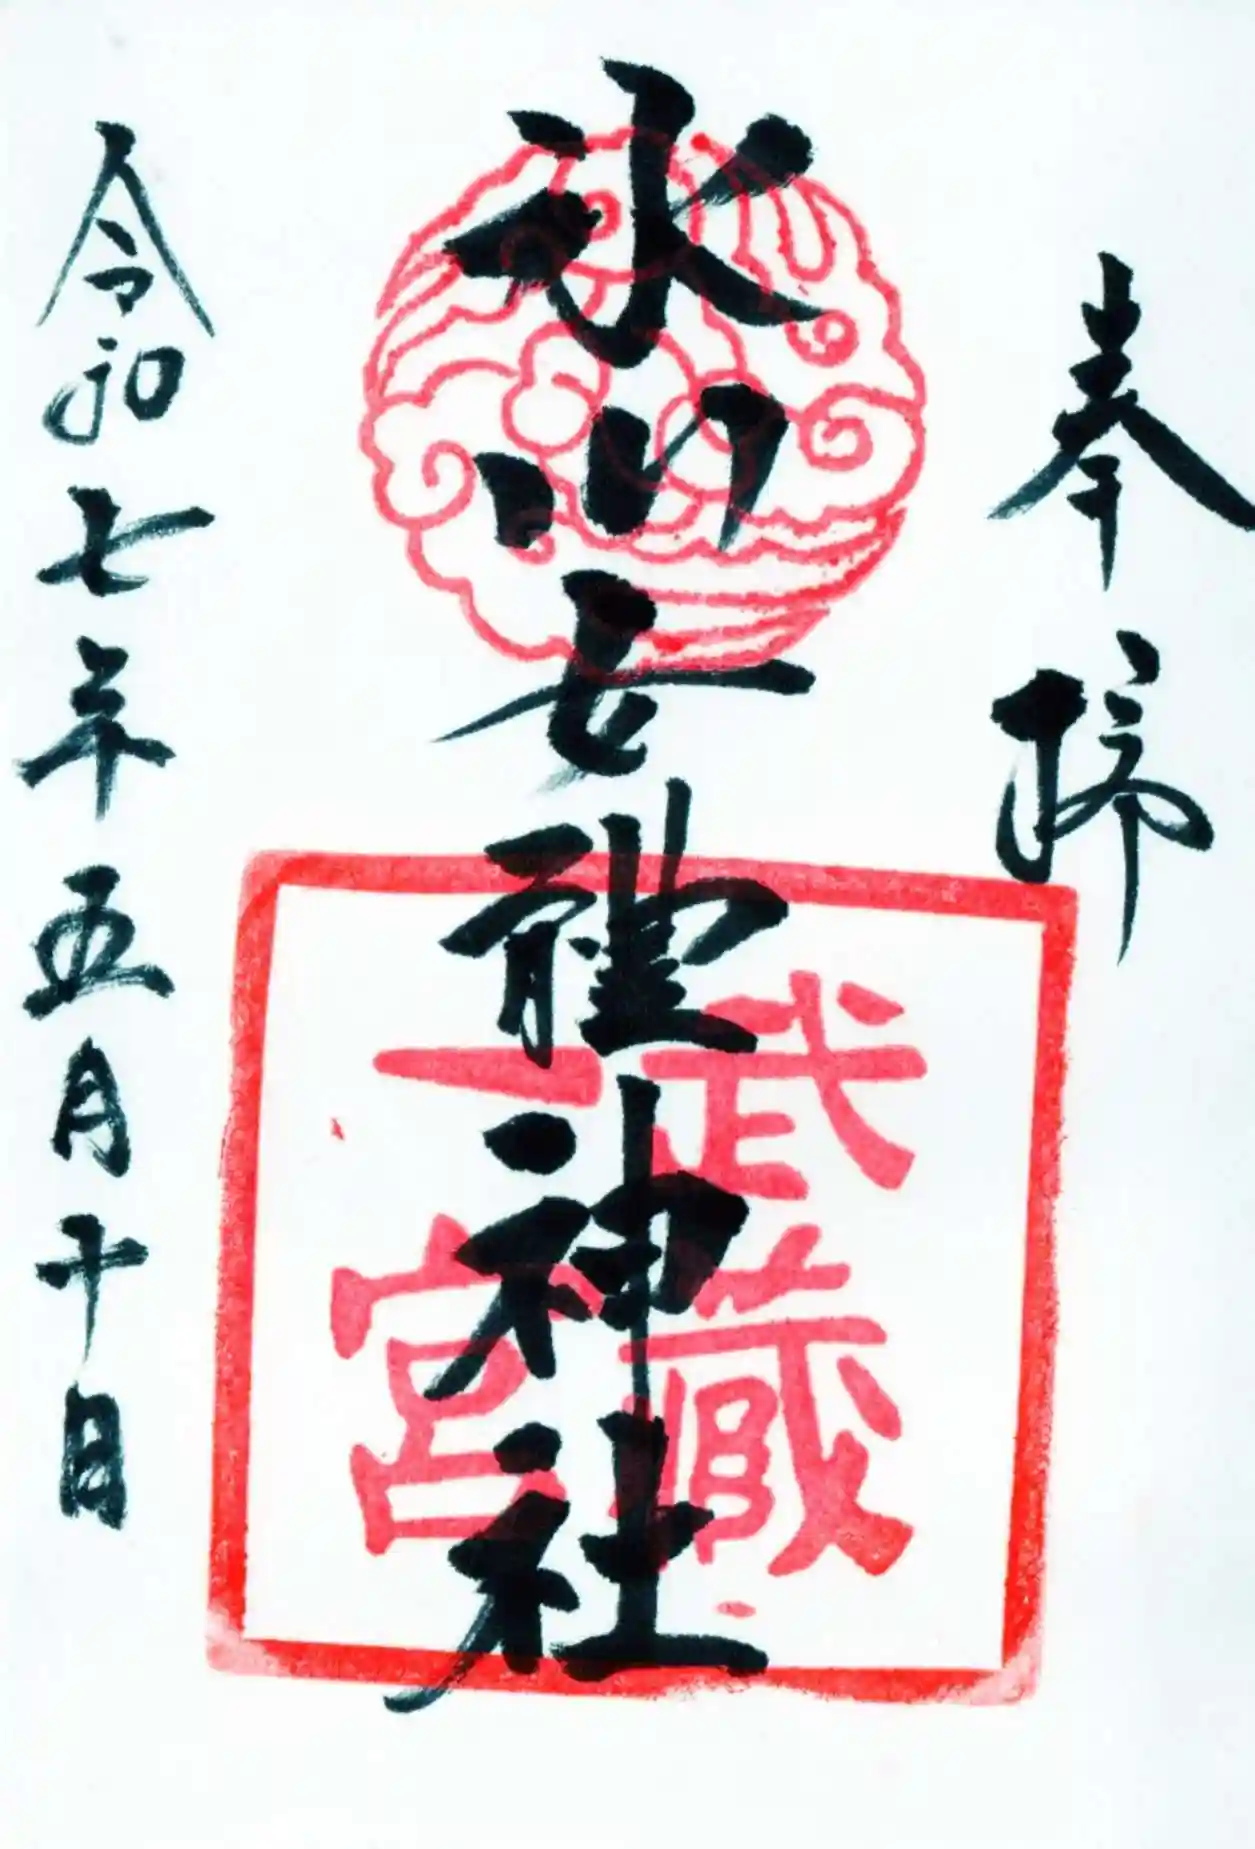 奉拝
氷川女體神社
武蔵
一宮
令和七年五月十日